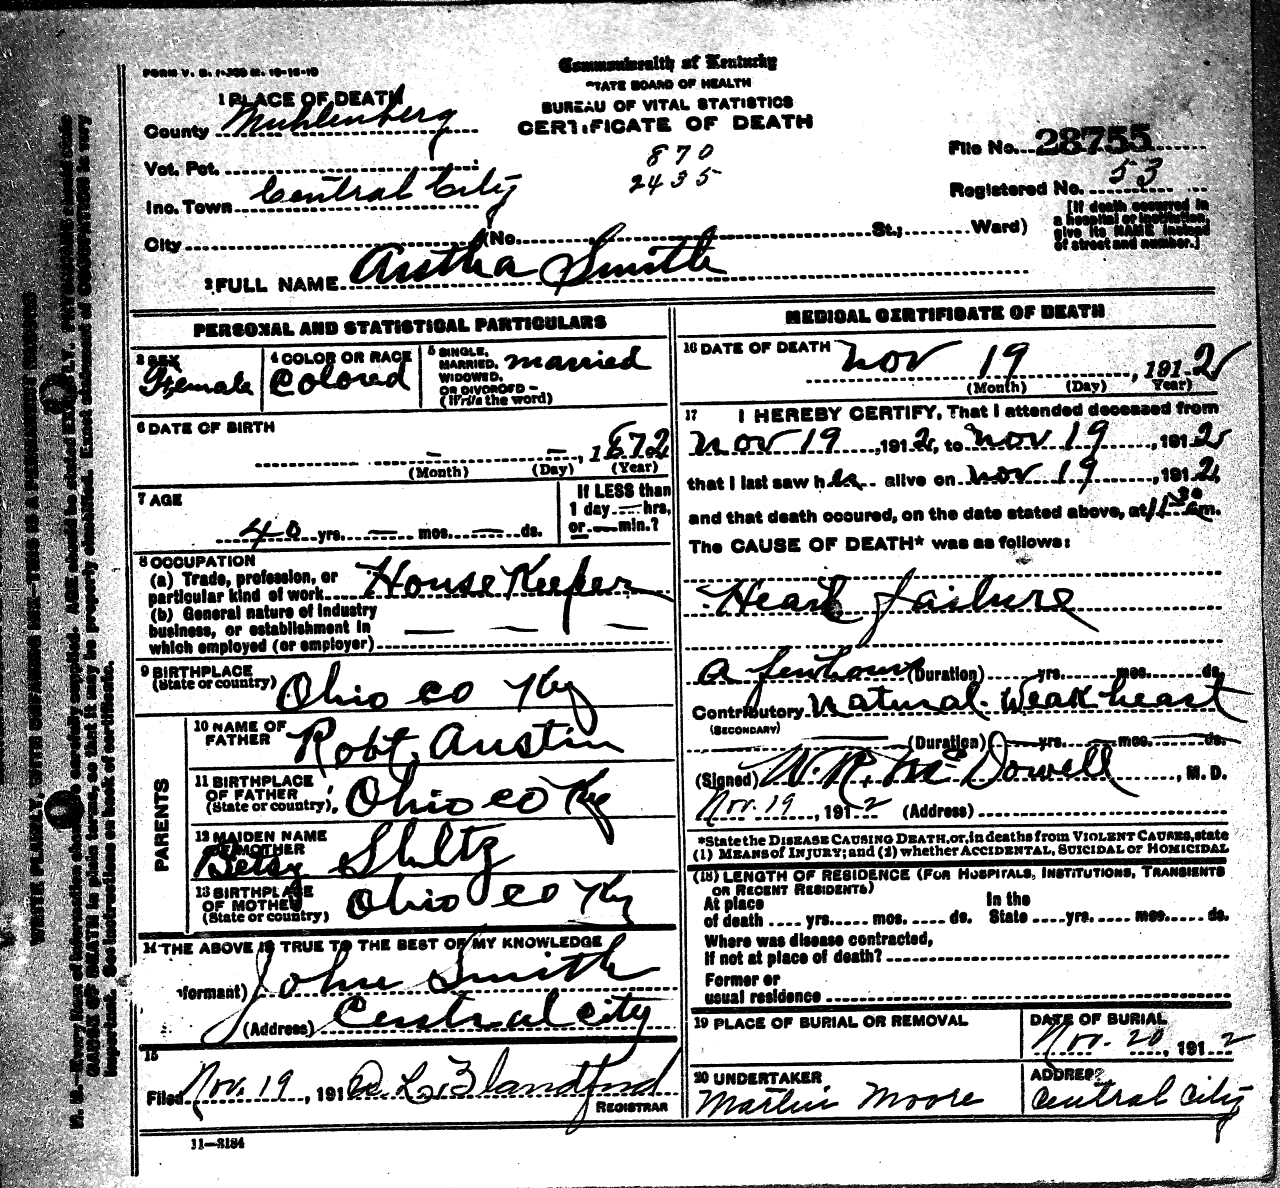 FORM V. S. 1-300 M. 10-15-10
Commonwealth of Kentucky
STATE BOARD OF HEALTH
BUREAU OF VITAL STATISTICS
CERTIFICATE OF DEATH
870
2435
1 PLACE OF DEATH
County Muhlenberg
Vot. Pct.
Inc. Town Central City
City (No. St.; Ward)
File No. 28755
Registered No. 53
[If death occurred in
a hospital or institution,
give its NAME instead
of street and number.]
2 FULL NAME Smith
PERSONAL AND STATISTICAL PARTICULARS
3 SEX Female
4 COLOR OR RACE Colored
5 SINGLE, MARRIED, WIDOWED, OR DIVORCED (Write the word) married
6 DATE OF BIRTH
— — , 1872
(Month) (Day) (Year)
7 AGE
40 yrs. — mos. — ds.
If LESS than
1 day — hrs.
or — min.?
8 OCCUPATION
(a) Trade, profession, or
particular kind of work House Keeper
(b) General nature of industry
business, or establishment in
which employed (or employer) — — —
9 BIRTHPLACE
(State or country) Ohio co Ky
PARENTS
10 NAME OF
FATHER Robt. Austin
11 BIRTHPLACE
OF FATHER
(State or country) Ohio co Ky
12 MAIDEN NAME
OF MOTHER Betsy Shultz
13 BIRTHPLACE
OF MOTHER
(State or country) Ohio co Ky
14 THE ABOVE IS TRUE TO THE BEST OF MY KNOWLEDGE
(Informant) John Smith
(Address) Central city
15
Filed Nov. 19, 191 D. L. Blandford
REGISTRAR
11—3184
MEDICAL CERTIFICATE OF DEATH
16 DATE OF DEATH Nov 19, 1912
(Month) (Day) (Year)
17 I HEREBY CERTIFY, That I attended deceased from
Nov 19, 1912, to Nov 19, 1912
that I last saw her alive on Nov 19, 1912,
and that death occured, on the date stated above, at 11 30 am.
The CAUSE OF DEATH* was as follows:
Heart failure
a few hours (Duration) yrs. mos. ds.
Contributory Natural Weak heart
(SECONDARY)
(Duration) yrs. mos. ds.
(Signed) W. R. McDowell, M. D.
Nov. 19, 1912 (Address)
*State the DISEASE CAUSING DEATH, or, in deaths from VIOLENT CAUSES, state
(1) MEANS of INJURY; and (2) whether ACCIDENTAL, SUICIDAL or HOMICIDAL
(18) LENGTH OF RESIDENCE (FOR HOSPITALS, INSTITUTIONS, TRANSIENTS
OR RECENT RESIDENTS)
At place In the
of death yrs. mos. ds. State yrs. mos. ds.
Where was disease contracted,
If not at place of death?
Former or
usual residence
19 PLACE OF BURIAL OR REMOVAL
DATE OF BURIAL
Nov. 20, 1912
20 UNDERTAKER
Martin Moore
ADDRESS
Central City
WRITE PLAINLY, WITH UNFADING INK—THIS IS A PERMANENT RECORD
N. B.—Every item of information should be carefully supplied. AGE should be stated EXACTLY. PHYSICIANS should state
CAUSE OF DEATH in plain terms, so that it may be properly classified. Exact statement of OCCUPATION is very
important. See instructions on back of certificate.